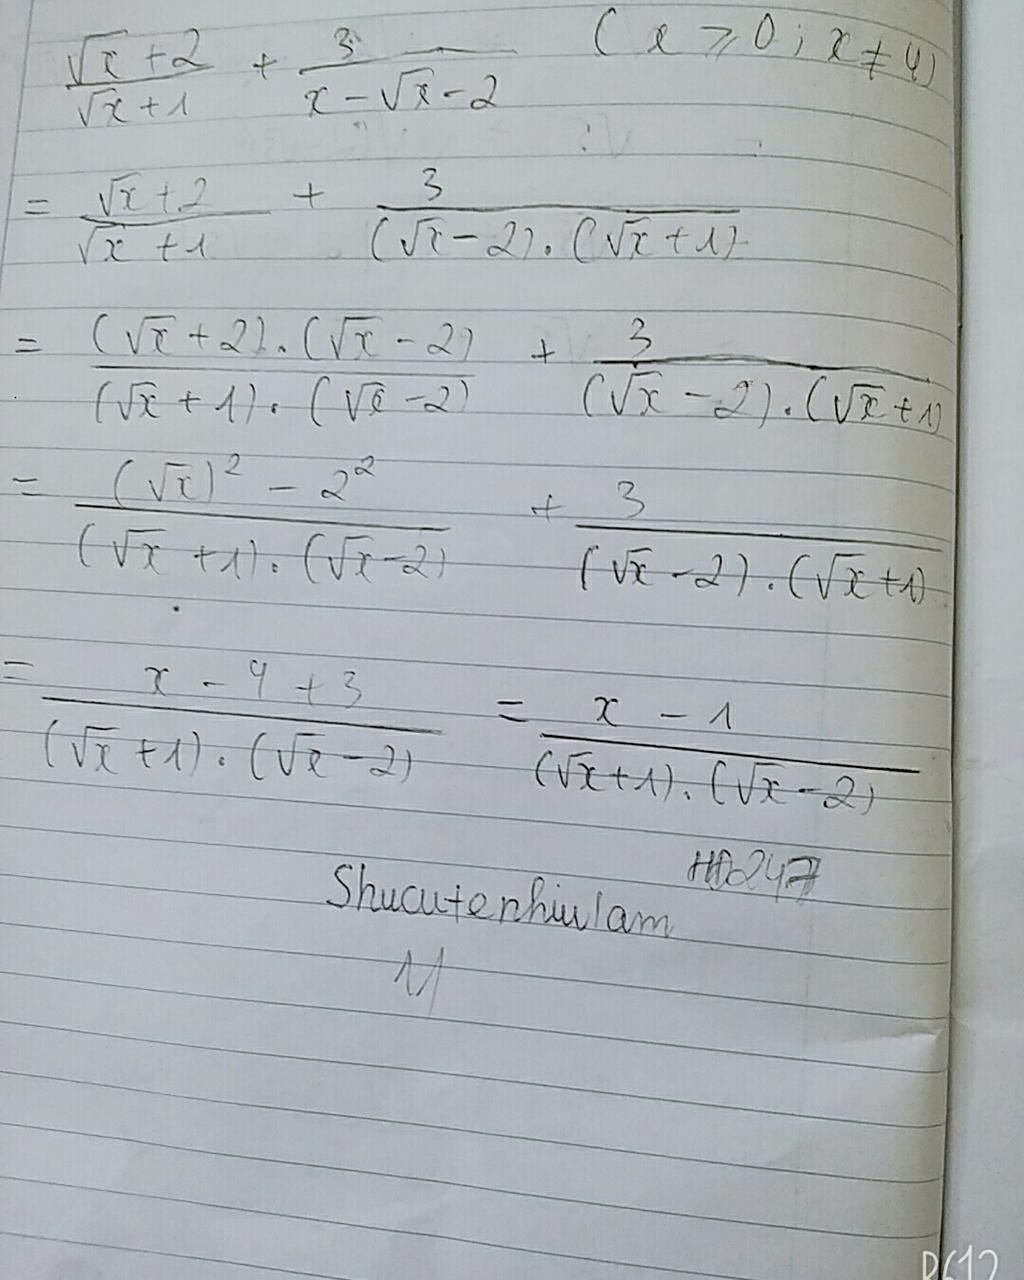 (√x+2)/(√x+1) + 3/(x-√x-2) (x ⩾ 0; x ≠ 4)
= (√x+2)/(√x+1) + 3/((√x-2).(√x+1))
= ((√x+2).(√x-2))/((√x+1).(√x-2)) + 3/((√x-2).(√x+1))
= ((√x)² - 2²)/((√x+1).(√x-2)) + 3/((√x-2).(√x+1))
= (x-4+3)/((√x+1).(√x-2)) = (x-1)/((√x+1).(√x-2))
Shucutenhiulam